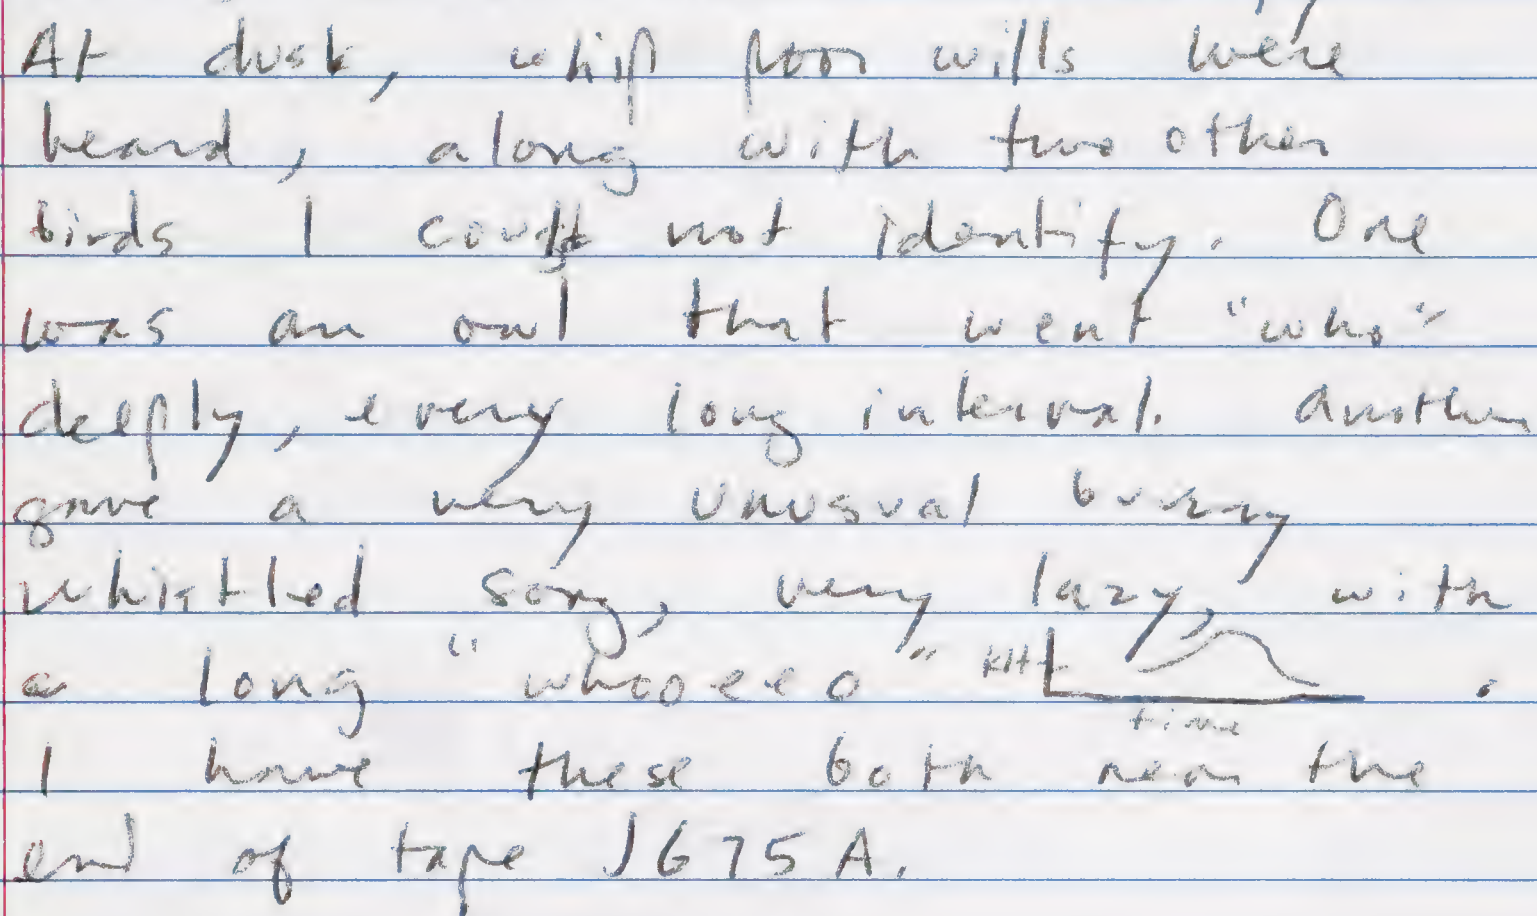 At dusk, whip poor wills were
heard, along with two other
birds I could not identify. One
was an owl that went "who"
deeply, every long interval. Another
gave a very unusual burry
whistled song, very lazy, with
a long "whooeeo" KHz .
time
I have these both near the
end of tape J675A.